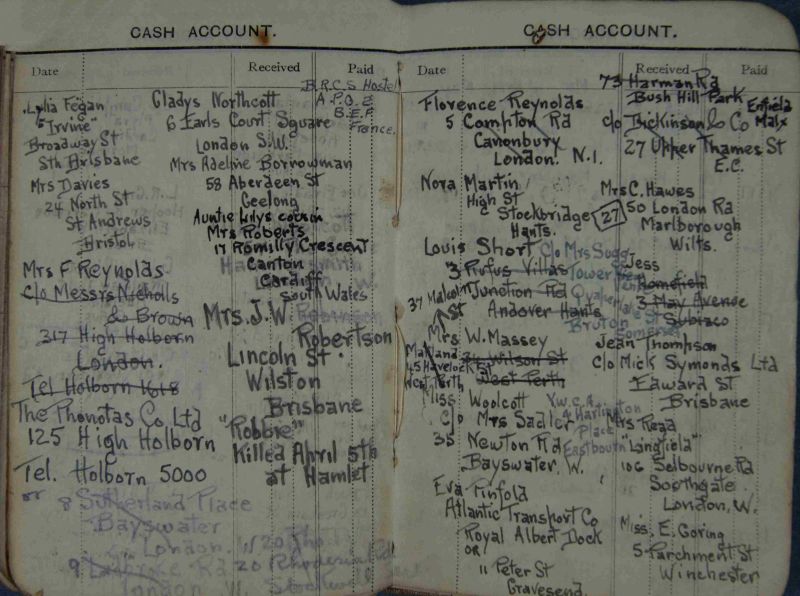 CASH ACCOUNT.
Date Received Paid
Lylia Fegan
"Irvine"
Broadway St
Sth Brisbane
Mrs Davies
24 North St
St Andrews
Bristol
Mrs F Reynolds
c/o Messrs Nicholls
& Brown
317 High Holborn
London.
Tel Holborn 1618
The Phonotas Co, Ltd
125 High Holborn
Tel. Holborn 5000
or 8 Sutherland Place
Bayswater
London. W
9 Ladbroke Rd
London W.
B.R.C.S Hostel
A.P.O.E
B.E.F
France.
Gladys Northcott
6 Earls Court Square
London S.W.
Mrs Adeline Borrowman
58 Aberdeen St
Geelong
Auntie Lilys cousin
Mrs Roberts
17 Romilly Crescent
Canton
Cardiff
South Wales
Mrs. J. W.
Robertson
Lincoln St.
Wilston
Brisbane
"Robbie"
Killed April 5th
at Hamlet
20 Rhodesia Rd
Stockwell
CASH ACCOUNT.
Date Received Paid
Florence Reynolds
5 Compton Rd
Canonbury
London. N.1.
Nora Martin
High St
Stockbridge
Hants.
27
Louis Short
3 Rufus Villas
Junction Rd
Andover Hants
c/o Mrs Sugg
Tower
Bruton
Somerset
37 Malcolm
St
Mrs W. Massey
Maitland
24 Wilson St
45 Havelock St
West Perth
West Perth
Miss Woolcott
c/o Mrs Sadler
35 Newton Rd
Bayswater. W.
Y.W.C.A
4 Hartington
Place
Eastbourn
Eva Pinfold
Atlantic Transport Co
Royal Albert Dock
or
11 Peter St
Gravesend.
73 Harman Rd
Bush Hill Park
Enfield
Malx
c/o Dickinson & Co
27 Upper Thames St
E.C.
Mrs C. Hawes
50 London Rd
Marlborough
Wilts.
Jess
Homefield
3 May Avenue
Subiaco
Jean Thompson
c/o Mick Symonds Ltd
Edward St
Brisbane
Mrs Read
"Langfield"
106 Selbourne Rd
Southgate
London, W.
Miss. E. Goring
5 Parchment St
Winchester